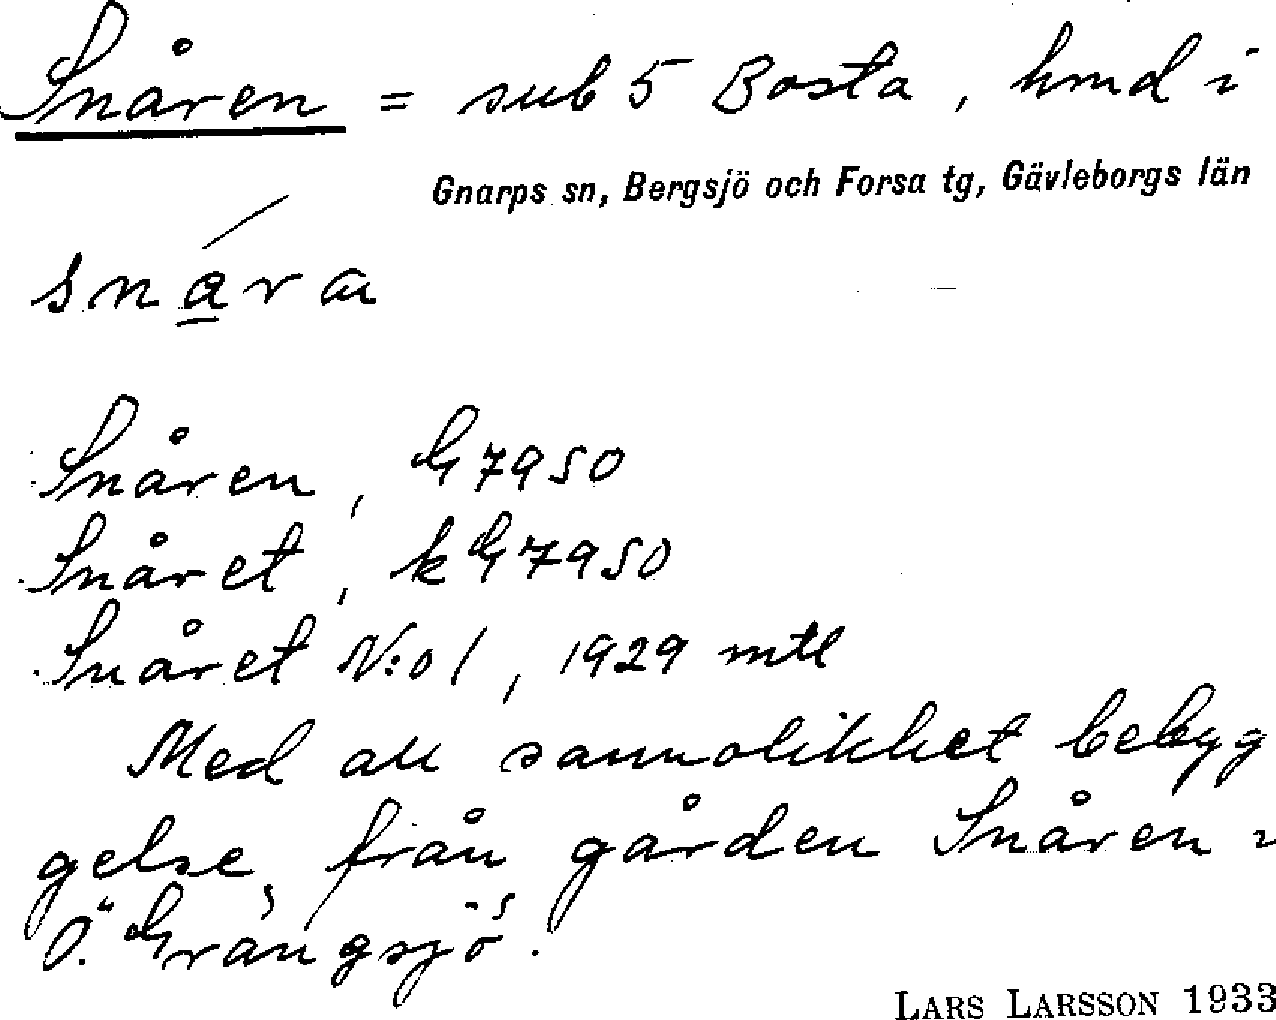 Snåren = sub 5 Bosta, hmd i
Gnarps sn, Bergsjö och Forsa tg, Gävleborgs län
snara
Snåren, G 7950
Snåret, kG 7950
Snåret N:o 1, 1929 mtl
Med all sannolikhet bebyg
gelse från gården Snåren i
Ö. Grängsjö.
LARS LARSSON 1933